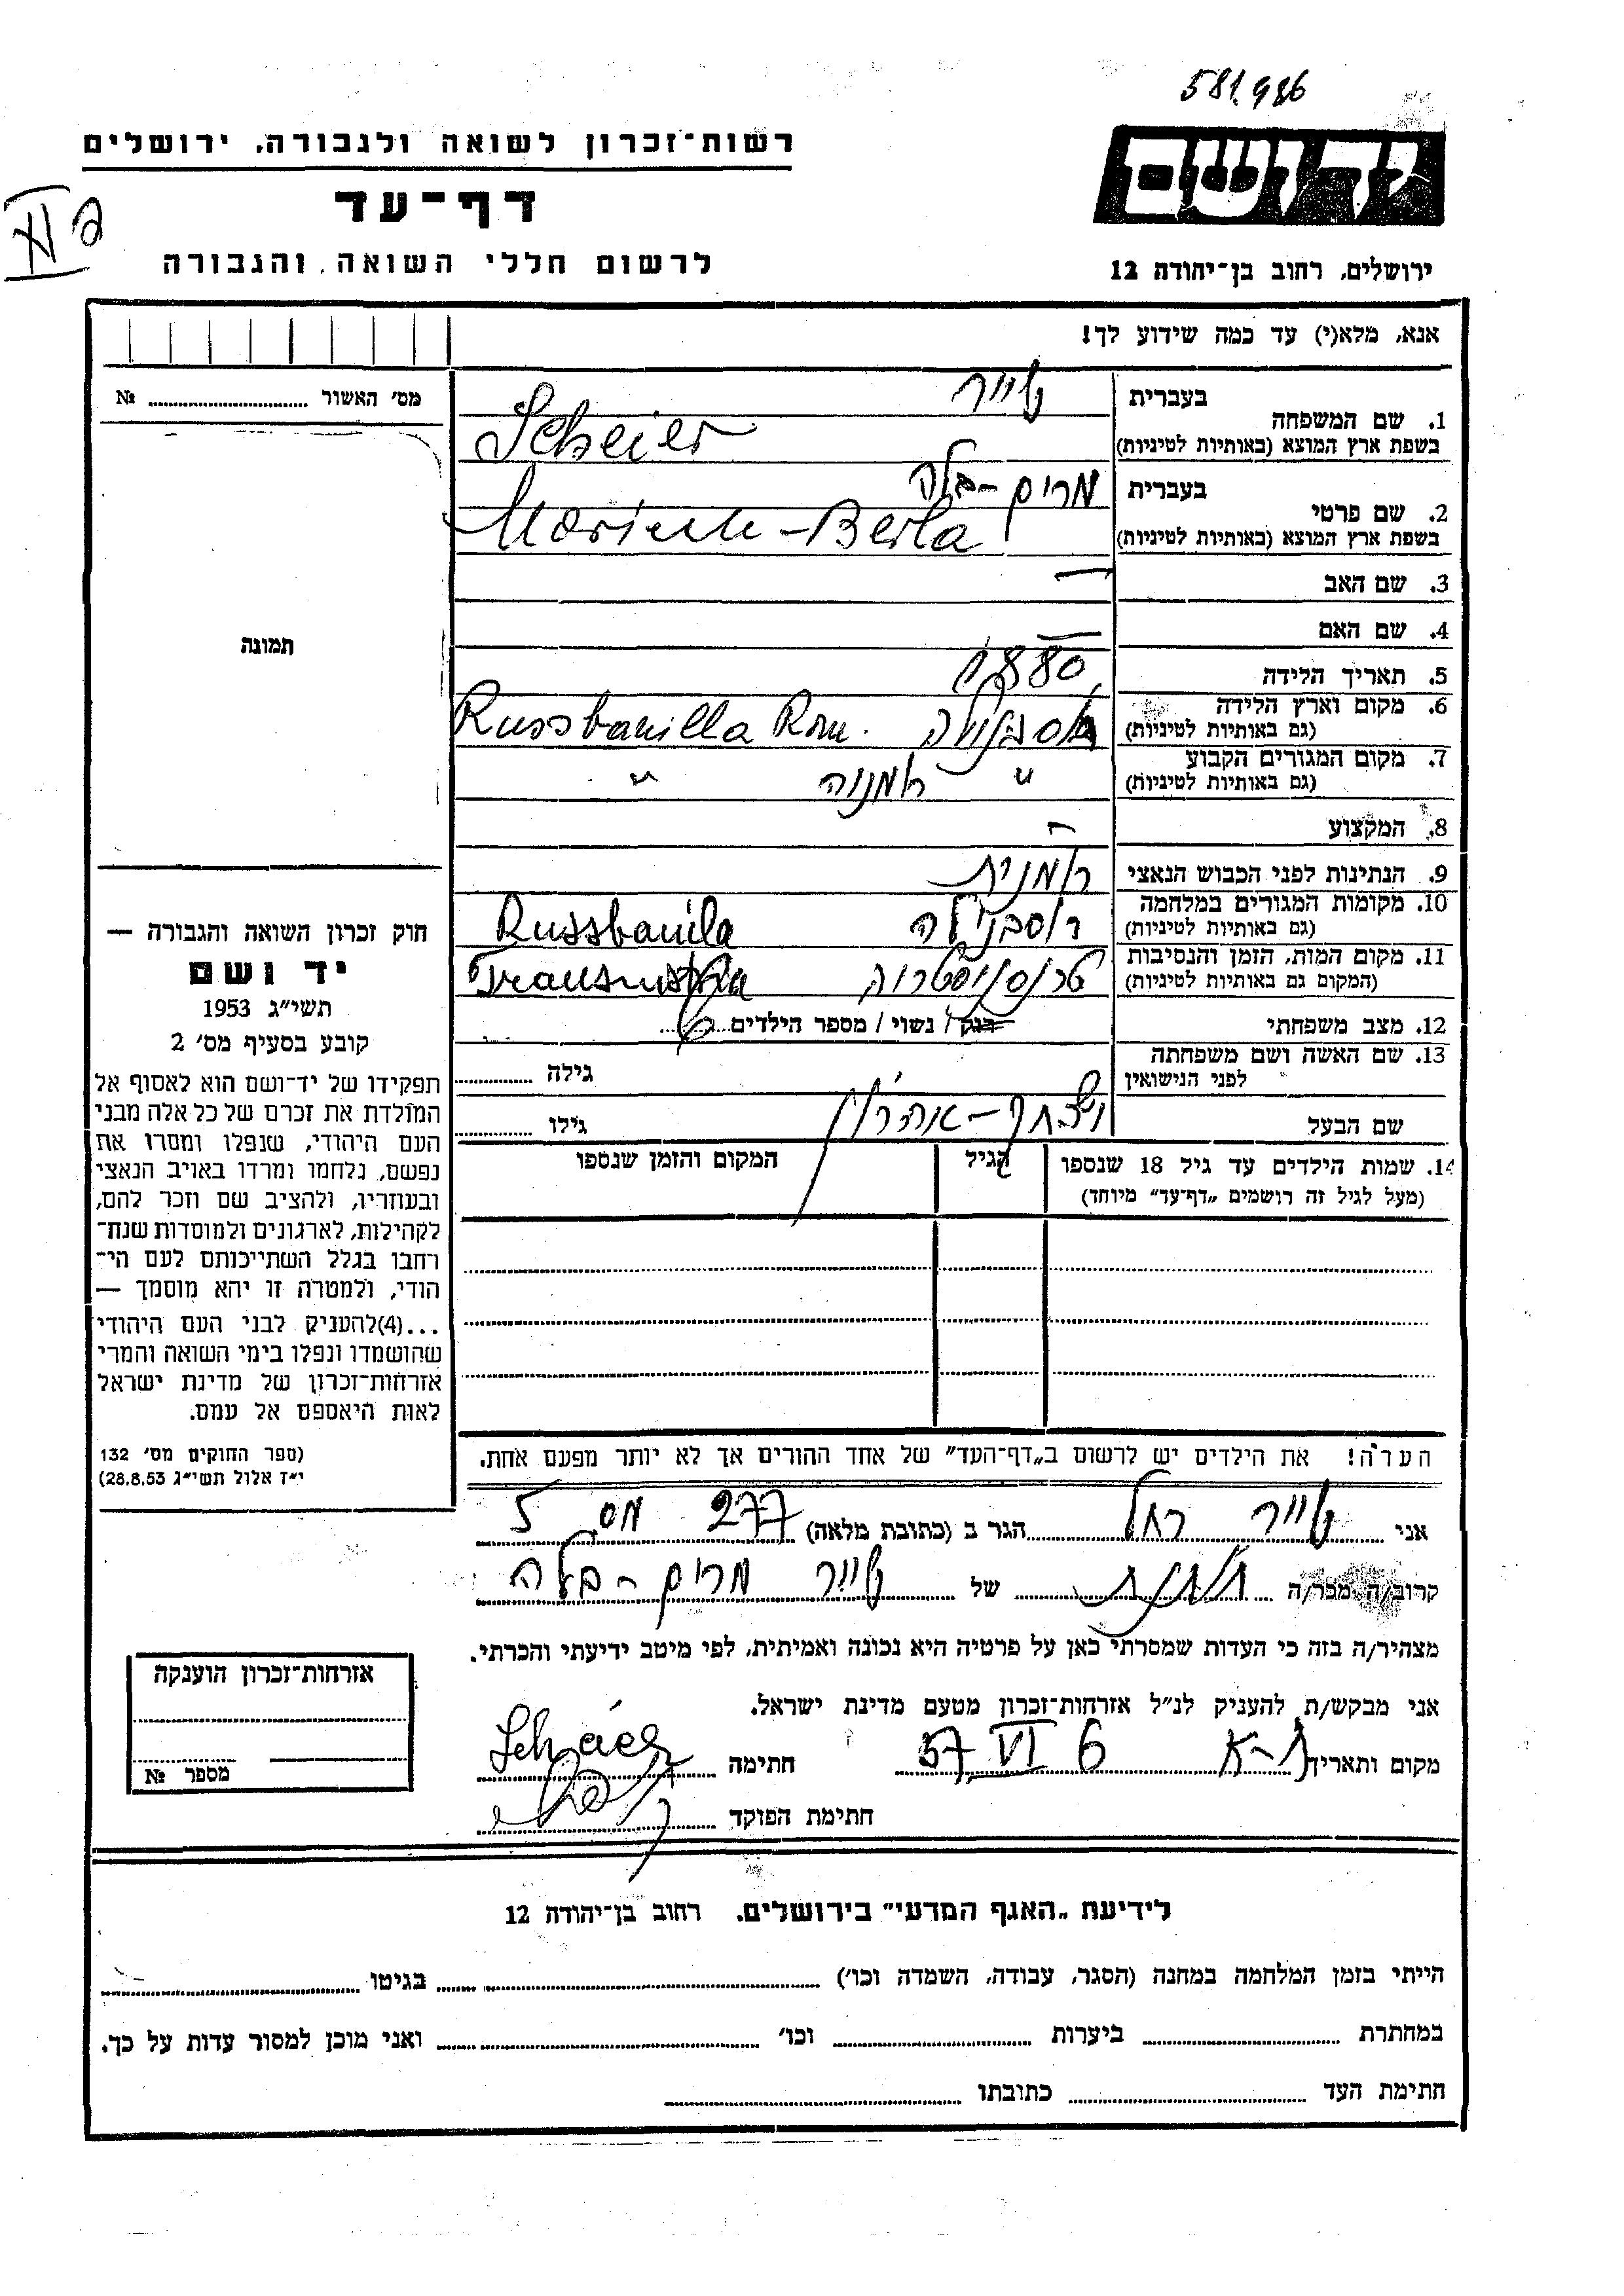 581.986
רשות־זכרון לשואה ולגבורה, ירושלים
יד ושם
דף־עד
לרשום חללי השואה והגבורה
ירושלים, רחוב בן־יהודה 12
אנא, מלא(י) עד כמה שידוע לך!
מס׳ האשור № ........
1. שם המשפחה
בעברית
שייר
בשפת ארץ המוצא (באותיות לטיניות)
Scheier
2. שם פרטי
בעברית
מרים - בלה
בשפת ארץ המוצא (באותיות לטיניות)
-Berla
3. שם האב —
4. שם האם —
5. תאריך הלידה 1880
6. מקום וארץ הלידה
(גם באותיות לטיניות)
Russbanilla Rom.
7. מקום המגורים הקבוע
(גם באותיות לטיניות)
" רומנוה "
8. המקצוע —
9. הנתינות לפני הכבוש הנאצי רומנית
10. מקומות המגורים במלחמה
(גם באותיות לטיניות)
רוסבנילה Russbanila
11. מקום המות, הזמן והנסיבות
(המקום גם באותיות לטיניות)
טרנסניסטריה
12. מצב משפחתי רווק / נשוי / מספר הילדים 6
13. שם האשה ושם משפחתה
לפני הנישואין
גילה ........
שם הבעל
יצחק - אהרון
גילו ........
14. שמות הילדים עד גיל 18 שנספו
(מעל לגיל זה רושמים „דף־עד״ מיוחד)
הגיל
המקום והזמן שנספו
תמונה
חוק זכרון השואה והגבורה —
יד ושם
תשי״ג 1953
קובע בסעיף מס׳ 2
תפקידו של יד־ושם הוא לאסוף אל
המולדת את זכרם של כל אלה מבני
העם היהודי, שנפלו ומסרו את
נפשם, נלחמו ומרדו באויב הנאצי
ובעוזריו, ולהציב שם וזכר להם,
לקהילות, לארגונים ולמוסדות שנח־
רחבו בגלל השתייכותם לעם הי־
הודי, ולמטרה זו יהא מוסמך —
...(4)להעניק לבני העם היהודי
שהושמדו ונפלו בימי השואה והמרי
אזרחות־זכרון של מדינת ישראל
לאות היאספם אל עמם.
(ספר החוקים מס׳ 132
י״ז אלול תשי״ג 28.8.53)
הערה! את הילדים יש לרשום ב„דף־העד״ של אחד ההורים אך לא יותר מפעם אחת.
אני שייר רחל הגר ב (כתובת מלאה) 277
קרוב/ה מכר/ה של שייר מרים - בלה
מצהיר/ה בזה כי העדות שמסרתי כאן על פרטיה היא נכונה ואמיתית, לפי מיטב ידיעתי והכרתי.
אני מבקש/ת להעניק לנ״ל אזרחות־זכרון מטעם מדינת ישראל.
מקום ותאריך 6 VI 57 חתימה
חתימת הפוקד
אזרחות־זכרון הוענקה
מספר №
לידיעת „האגף המדעי״ בירושלים, רחוב בן־יהודה 12
הייתי בזמן המלחמה במחנה (הסגר, עבודה, השמדה וכו׳) ........ בגיטו ........
במחתרת ........ ביערות ........ וכו׳ ........ ואני מוכן למסור עדות על כך.
חתימת העד ........ כתובתו ........